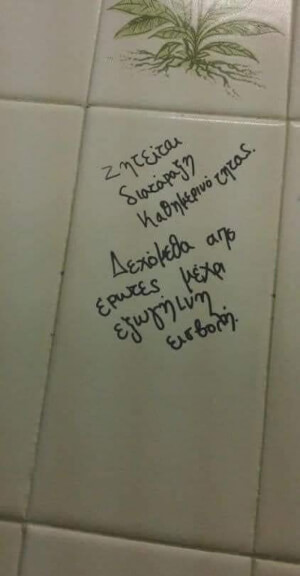 Ζητείται
διατάραξη
καθημερινότητας.
Δεχόμεθα από
έρωτες μέχρι
εξωγήινη
εισβολή.